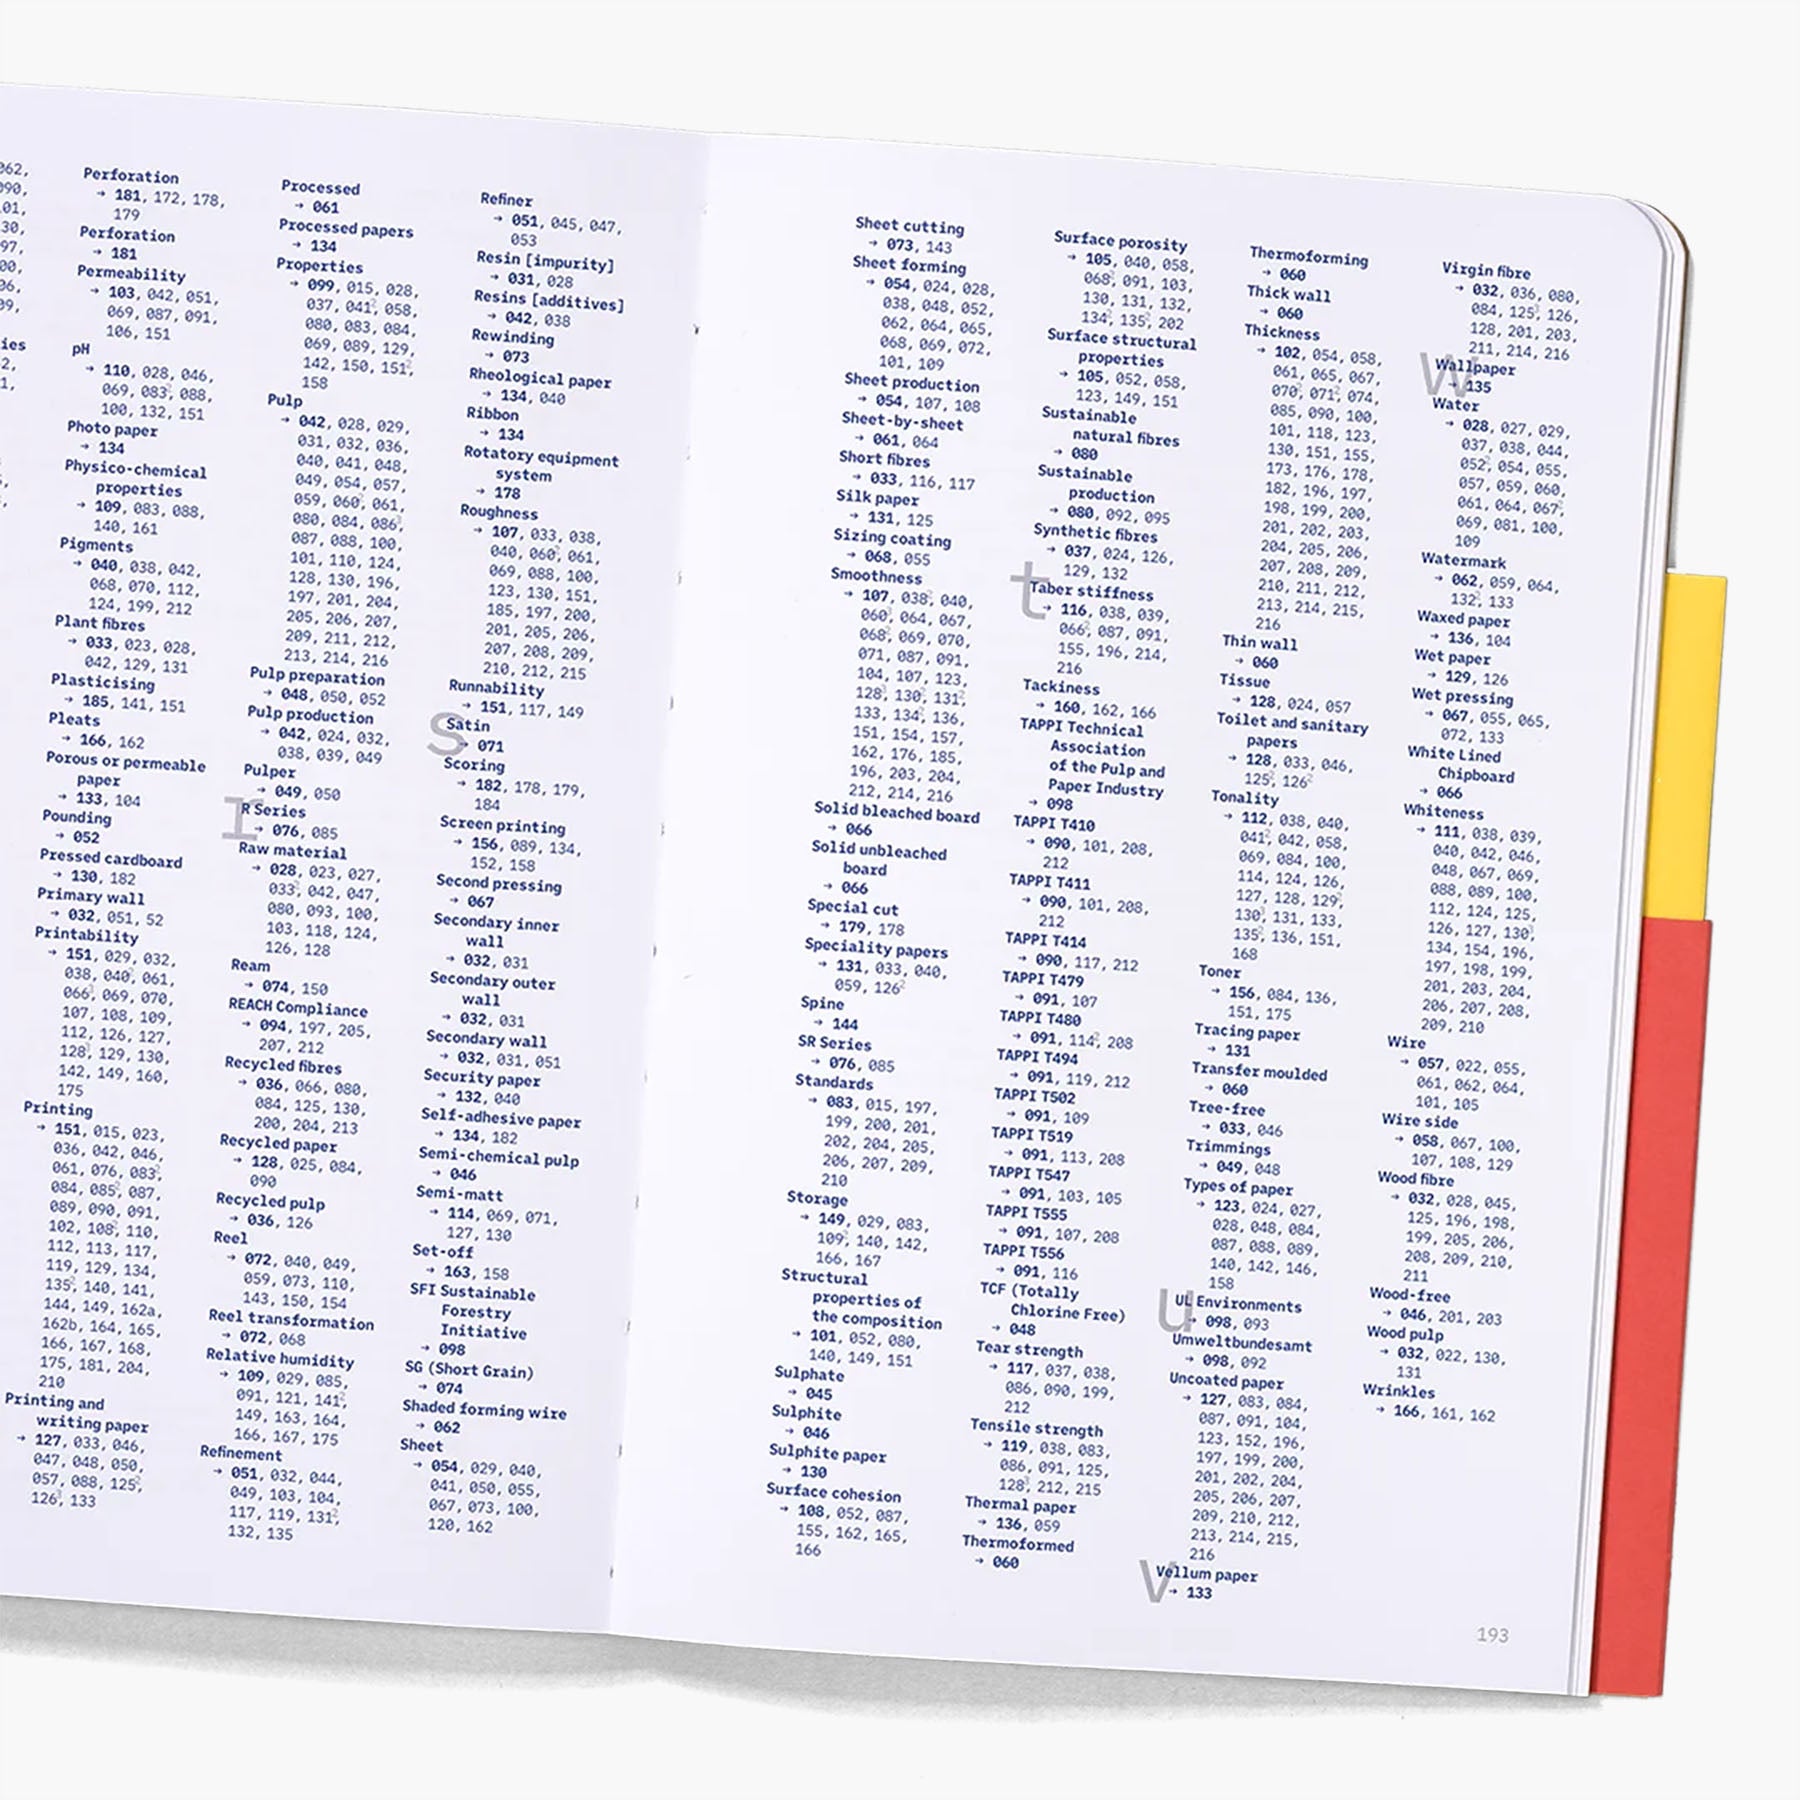 062,
090,
101,
Perforation
→ 181, 172, 178,
179
Perforation
→ 181
Permeability
→ 103, 042, 051,
069, 087, 091,
106, 151
pH
→ 110, 028, 046,
069, 083², 088,
100, 132, 151
Photo paper
→ 134
Physico-chemical
properties
→ 109, 083, 088,
140, 161
Pigments
→ 040, 038, 042,
068, 070, 112,
124, 199, 212
Plant fibres
→ 033, 023, 028,
042, 129, 131
Plasticising
→ 185, 141, 151
Pleats
→ 166, 162
Porous or permeable
paper
→ 133, 104
Pounding
→ 052
Pressed cardboard
→ 130, 182
Primary wall
→ 032, 051, 52
Printability
→ 151, 029, 032,
038, 040², 061,
066², 069, 070,
107, 108, 109,
112, 126, 127,
128³, 129, 130,
142, 149, 160,
175
Printing
→ 151, 015, 023,
036, 042, 046,
061, 076, 083²,
084, 085², 087,
089, 090, 091,
102, 108², 110,
112, 113, 117,
119, 129, 134,
135², 140, 141,
144, 149, 162a,
162b, 164, 165,
166, 167, 168,
175, 181, 204,
210
Printing and
writing paper
→ 127, 033, 046,
047, 048, 050,
057, 088, 125²,
126³, 133
Processed
→ 061
Processed papers
→ 134
Properties
→ 099, 015, 028,
037, 041², 058,
080, 083, 084,
069, 089, 129,
142, 150, 151²,
158
Pulp
→ 042, 028, 029,
031, 032, 036,
040, 041, 048,
049, 054, 057,
059, 060², 061,
080, 084, 086³,
087, 088, 100,
101, 110, 124,
128, 130, 196,
197, 201, 204,
205, 206, 207,
209, 211, 212,
213, 214, 216
Pulp preparation
→ 048, 050, 052
Pulp production
→ 042, 024, 032,
038, 039, 049
Pulper
→ 049, 050
r
R Series
→ 076, 085
Raw material
→ 028, 023, 027,
033², 042, 047,
080, 093, 100,
103, 118, 124,
126, 128
Ream
→ 074, 150
REACH Compliance
→ 094, 197, 205,
207, 212
Recycled fibres
→ 036, 066, 080,
084, 125, 130,
200, 204, 213
Recycled paper
→ 128, 025, 084,
090
Recycled pulp
→ 036, 126
Reel
→ 072, 040, 049,
059, 073, 110,
143, 150, 154
Reel transformation
→ 072, 068
Relative humidity
→ 109, 029, 085,
091, 121, 141²,
149, 163, 164,
166, 167, 175
Refinement
→ 051, 032, 044,
049, 103, 104,
117, 119, 131²,
132, 135
Refiner
→ 051, 045, 047,
053
Resin [impurity]
→ 031, 028
Resins [additives]
→ 042, 038
Rewinding
→ 073
Rheological paper
→ 134, 040
Ribbon
→ 134
Rotatory equipment
system
→ 178
Roughness
→ 107, 033, 038,
040, 060², 061,
069, 088, 100,
123, 130, 151,
185, 197, 200,
201, 205, 206,
207, 208, 209,
210, 212, 215
Runnability
→ 151, 117, 149
s
Satin
→ 071
Scoring
→ 182, 178, 179,
184
Screen printing
→ 156, 089, 134,
152, 158
Second pressing
→ 067
Secondary inner
wall
→ 032, 031
Secondary outer
wall
→ 032, 031
Secondary wall
→ 032, 031, 051
Security paper
→ 132, 040
Self-adhesive paper
→ 134, 182
Semi-chemical pulp
→ 046
Semi-matt
→ 114, 069, 071,
127, 130
Set-off
→ 163, 158
SFI Sustainable
Forestry
Initiative
→ 098
SG (Short Grain)
→ 074
Shaded forming wire
→ 062
Sheet
→ 054, 029, 040,
041, 050, 055,
067, 073, 100,
120, 162
Sheet cutting
→ 073, 143
Sheet forming
→ 054, 024, 028,
038, 048, 052,
062, 064, 065,
068, 069, 072,
101, 109
Sheet production
→ 054, 107, 108
Sheet-by-sheet
→ 061, 064
Short fibres
→ 033, 116, 117
Silk paper
→ 131, 125
Sizing coating
→ 068, 055
Smoothness
→ 107, 038², 040,
060³, 064, 067,
068², 069, 070,
071, 087, 091,
104, 107, 123,
128³, 130², 131²,
133, 134², 136,
151, 154, 157,
162, 176, 185,
196, 203, 204,
212, 214, 216
Solid bleached board
→ 066
Solid unbleached
board
→ 066
Special cut
→ 179, 178
Speciality papers
→ 131, 033, 040,
059, 126²
Spine
→ 144
SR Series
→ 076, 085
Standards
→ 083, 015, 197,
199, 200, 201,
202, 204, 205,
206, 207, 209,
210
Storage
→ 149, 029, 083,
109², 140, 142,
166, 167
Structural
properties of
the composition
→ 101, 052, 080,
140, 149, 151
Sulphate
→ 045
Sulphite
→ 046
Sulphite paper
→ 130
Surface cohesion
→ 108, 052, 087,
155, 162, 165,
166
Surface porosity
→ 105, 040, 058,
068², 091, 103,
130, 131, 132,
134², 135², 202
Surface structural
properties
→ 105, 052, 058,
123, 149, 151
Sustainable
natural fibres
→ 080
Sustainable
production
→ 080, 092, 095
Synthetic fibres
→ 037, 024, 126,
129, 132
t
Taber stiffness
→ 116, 038, 039,
066², 087, 091,
155, 196, 214,
216
Tackiness
→ 160, 162, 166
TAPPI Technical
Association
of the Pulp and
Paper Industry
→ 098
TAPPI T410
→ 090, 101, 208,
212
TAPPI T411
→ 090, 101, 208,
212
TAPPI T414
→ 090, 117, 212
TAPPI T479
→ 091, 107
TAPPI T480
→ 091, 114², 208
TAPPI T494
→ 091, 119, 212
TAPPI T502
→ 091, 109
TAPPI T519
→ 091, 113, 208
TAPPI T547
→ 091, 103, 105
TAPPI T555
→ 091, 107, 208
TAPPI T556
→ 091, 116
TCF (Totally
Chlorine Free)
→ 048
Tear strength
→ 117, 037, 038,
086, 090, 199,
212
Tensile strength
→ 119, 038, 083,
086, 091, 125,
128³, 212, 215
Thermal paper
→ 136, 059
Thermoformed
→ 060
Thermoforming
→ 060
Thick wall
→ 060
Thickness
→ 102, 054, 058,
061, 065, 067,
070², 071², 074,
085, 090, 100,
101, 118, 123,
130, 151, 155,
173, 176, 178,
182, 196, 197,
198, 199, 200,
201, 202, 203,
204, 205, 206,
207, 208, 209,
210, 211, 212,
213, 214, 215,
216
Thin wall
→ 060
Tissue
→ 128, 024, 057
Toilet and sanitary
papers
→ 128, 033, 046,
125², 126²
Tonality
→ 112, 038, 040,
041², 042, 058,
069, 084, 100,
114, 124, 126,
127, 128, 129²,
130³, 131, 133,
135², 136, 151,
168
Toner
→ 156, 084, 136,
151, 175
Tracing paper
→ 131
Transfer moulded
→ 060
Tree-free
→ 033, 046
Trimmings
→ 049, 048
Types of paper
→ 123, 024, 027,
028, 048, 084,
087, 088, 089,
140, 142, 146,
158
u
UL Environments
→ 098, 093
Umweltbundesamt
→ 098, 092
Uncoated paper
→ 127, 083, 084,
087, 091, 104,
123, 152, 196,
197, 199, 200,
201, 202, 204,
205, 206, 207,
209, 210, 212,
213, 214, 215,
216
v
Vellum paper
→ 133
Virgin fibre
→ 032, 036, 080,
084, 125³, 126,
128, 201, 203,
211, 214, 216
w
Wallpaper
→ 135
Water
→ 028, 027, 029,
037, 038, 044,
052², 054, 055,
057, 059, 060,
061, 064, 067²,
069, 081, 100,
109
Watermark
→ 062, 059, 064,
132², 133
Waxed paper
→ 136, 104
Wet paper
→ 129, 126
Wet pressing
→ 067, 055, 065,
072, 133
White Lined
Chipboard
→ 066
Whiteness
→ 111, 038, 039,
040, 042, 046,
048, 067, 069,
088, 089, 100,
112, 124, 125,
126, 127, 130³,
134, 154, 196,
197, 198, 199,
201, 203, 204,
206, 207, 208,
209, 210
Wire
→ 057, 022, 055,
061, 062, 064,
101, 105
Wire side
→ 058, 067, 100,
107, 108, 129
Wood fibre
→ 032, 028, 045,
125, 196, 198,
199, 205, 206,
208, 209, 210,
211
Wood-free
→ 046, 201, 203
Wood pulp
→ 032, 022, 130,
131
Wrinkles
→ 166, 161, 162
193